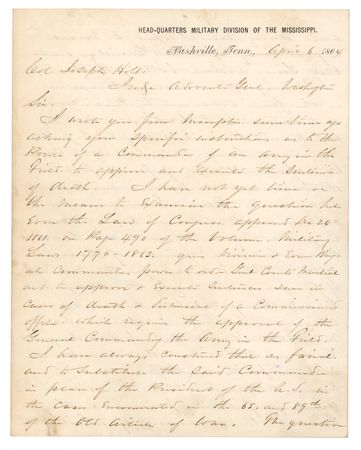 HEAD-QUARTERS MILITARY DIVISION OF THE MISSISSIPPI.
Nashville, Tenn., April 6 1864
Col Joseph Holt.
Judge Advocate Genl. Washington
Sir
I wrote you from Memphis some time ago
asking your specific instructions as to the
Power of a Commander of an Army in the
Field to approve and Execute the Sentence
of death. I have not yet time or
the means to Examine the question but
the Law of Congress approved Dec 24
1861. on Page 490 of the volume Military
Laws 1776-1863. gives Division &
Commanders power to order Genl Courts Martial
and to approve & Execute Sentences save in
cases of death & dismissal of a Commissioned
officer which require the approval of the
General Commanding the Army in the Field.
I have always construed that as
and to Substitute the said Commander
in place of the President of the U.S. in
the cases Enumerated in the 65. and 89th
of the Old Articles of War. The question